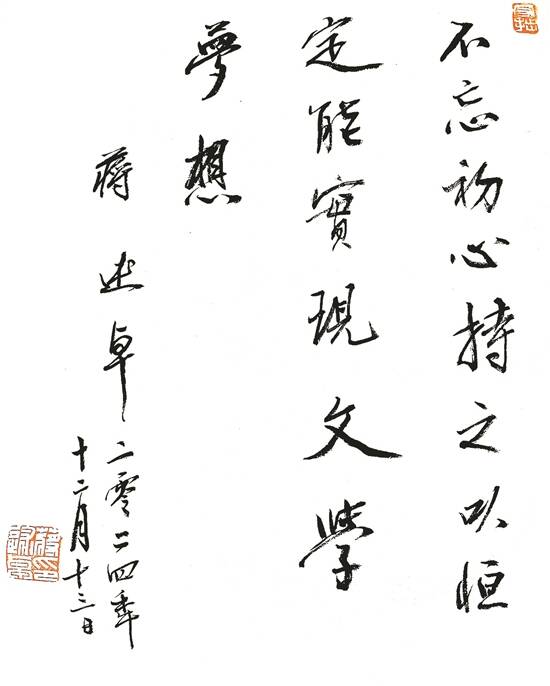 不忘初心持之以恒
定能實現文學
夢想
蔣述卓
二零二四年
十二月十三日